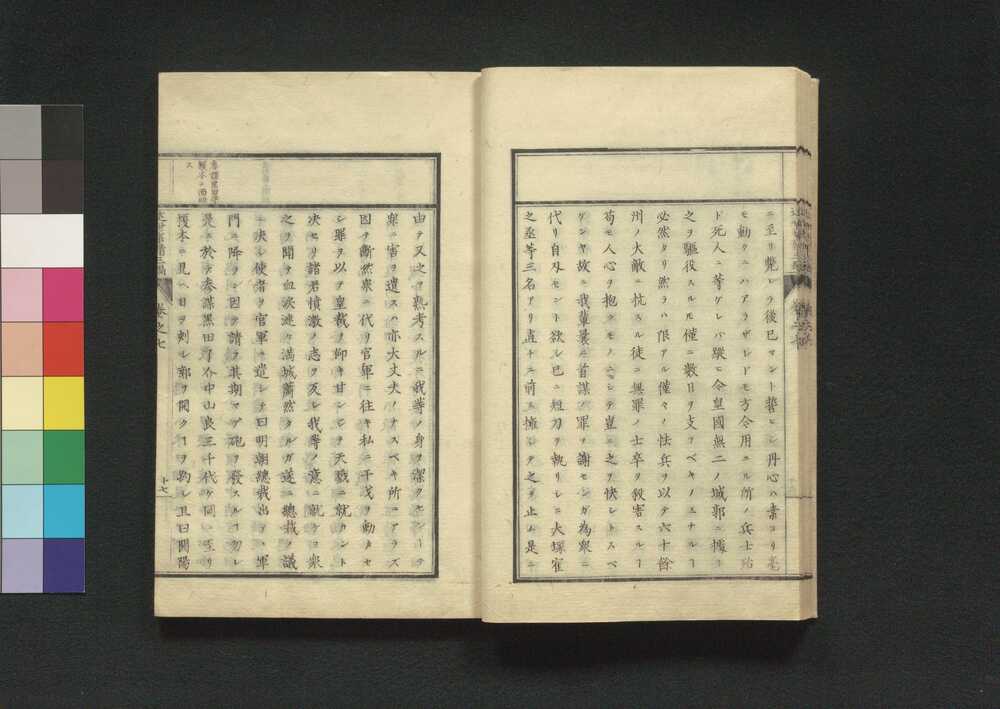 ニ至リ斃レテ後已マント誓ヒシ丹心ハ素ヨリ毫
モ動クニハアラザレドモ方今用ユル所ノ兵士殆
ド死人ニ等ケレバ縦ヒ令皇國無二ノ城郭ニ據リ
之ヲ驅役スルモ僅ニ數日ヲ支フベキノミナルヿ
必然タリ然ラハ限アル僅々ノ怯兵ヲ以テ六十餘
州ノ大敵ニ抗スル徒ニ無罪ノ士卒ヲ殺害スルヿ
苟モ人心ヲ抱クモノニシテ豈ニ之ヲ快シトスベ
ケンヤ故ニ我輩曩ニ首謀ノ罪ヲ謝センガ為衆ニ
代リ自刄セント欲シ已ニ短刀ヲ執リシニ大塚霍
之丞等三名アリ直ナニ前ミ擁シテ之ヲ止ム是ニ
由テ又之ヲ熟考スルニ我等ノ身ヲ潔クセンーテ
衆ニ害ヲ遺スハ亦大丈夫ノナスベキ所ニアラズ
因テ斷然衆ニ代リ官軍ニ往キ私ニ干戈ヲ動カセ
シ罪ヲ以テ皇裁ノ仰キ甘ンシテ天戮ニ就カント
决セリ諸君憤激ノ志ヲ反シ我等ノ意ニ就ケヨ衆
之ヲ聞キ血涙漣々滿城蕭然タルガ遂ニ總裁ヲ議
ニ决シ使者ヲ官軍ニ遣シテ曰明朝總裁出テヽ軍
門ニ降ラン因テ請フ其期マデ砲ヲ發スルヿ勿レ
是ニ於テ参謀黒田了介中山良三千代ケ岡ニ至リ
榎本ニ見ヘ日ヲ刻シ郭ヲ開クヿヲ約シ且曰開陽
参謀黒田等
榎本ニ面明
ス
卷之七
十七